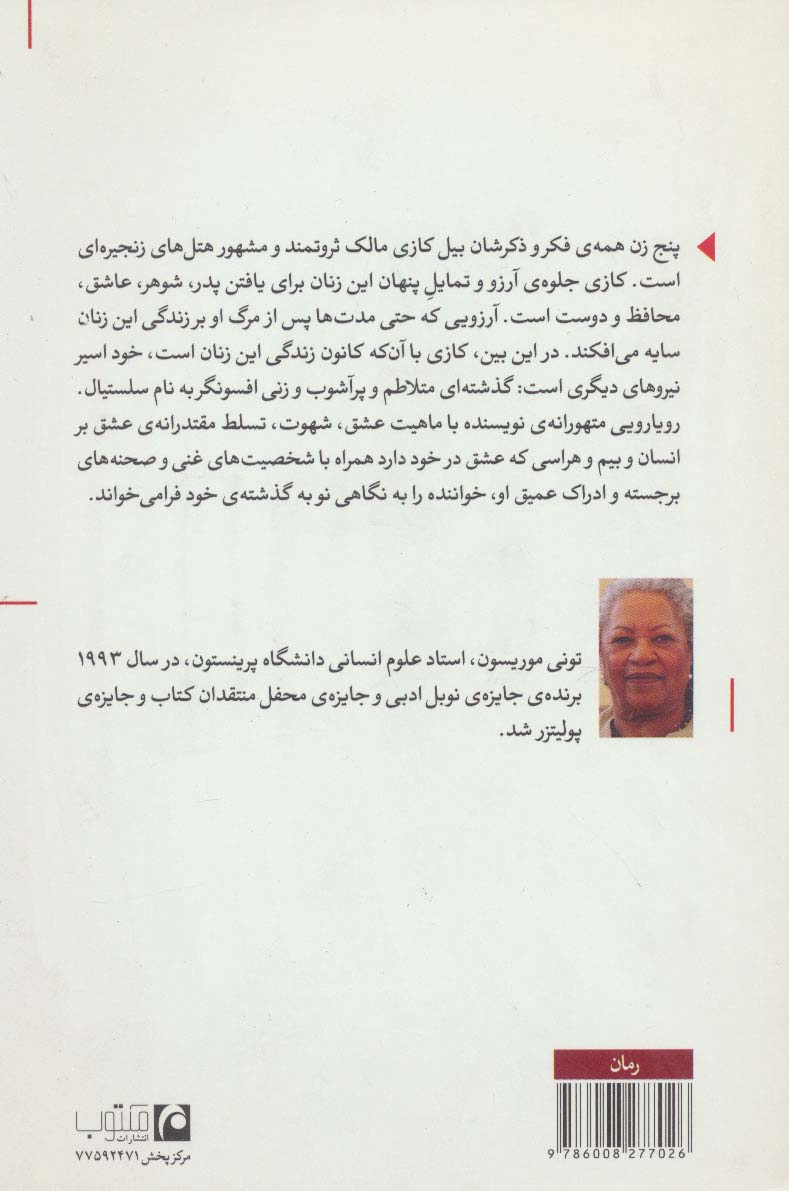 پنج زن همه‌ی فکر و ذکرشان بیل کازی مالک ثروتمند و مشهور هتل‌های زنجیره‌ای
است. کازی جلوه‌ی آرزو و تمایلِ پنهان این زنان برای یافتن پدر، شوهر، عاشق،
محافظ و دوست است. آرزویی که حتی مدت‌ها پس از مرگ او بر زندگی این زنان
سایه می‌افکند. در این بین، کازی با آن‌که کانون زندگی این زنان است، خود اسیر
نیروهای دیگری است: گذشته‌ای متلاطم و پرآشوب و زنی افسونگر به نام سلستیال.
رویارویی متهورانه‌ی نویسنده با ماهیت عشق، شهوت، تسلط مقتدرانه‌ی عشق بر
انسان و بیم و هراسی که عشق در خود دارد همراه با شخصیت‌های غنی و صحنه‌های
برجسته و ادراک عمیق او، خواننده را به نگاهی نو به گذشته‌ی خود فرامی‌خواند.
تونی موریسون، استاد علوم انسانی دانشگاه پرینستون، در سال ۱۹۹۳
برنده‌ی جایزه‌ی نوبل ادبی و جایزه‌ی محفل منتقدان کتاب و جایزه‌ی
پولیتزر شد.
رمان
9 786008 277026
مکتوب
انتشارات
مرکز پخش ۷۷۵۹۲۴۷۱